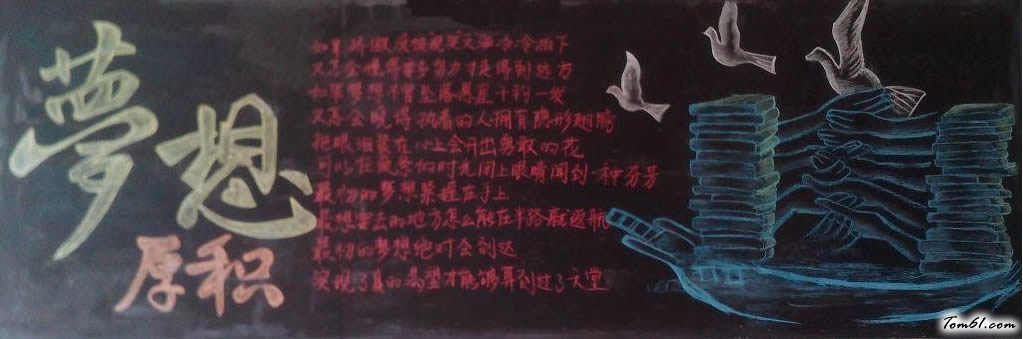 夢想
厚积
如果骄傲没被现实大海冷冷拍下
又怎会懂得要多努力才走得到远方
如果梦想不曾坠落悬崖千钧一发
又怎会晓得执着的人拥有隐形翅膀
把眼泪装在心上会开出勇敢的花
可以在疲惫的时光闭上眼睛闻到一种芬芳
最初的梦想紧握在手上
最想要去的地方怎么能在半路就返航
最初的梦想绝对会到达
实现了真的渴望才能够算到过了天堂
Tom61.com